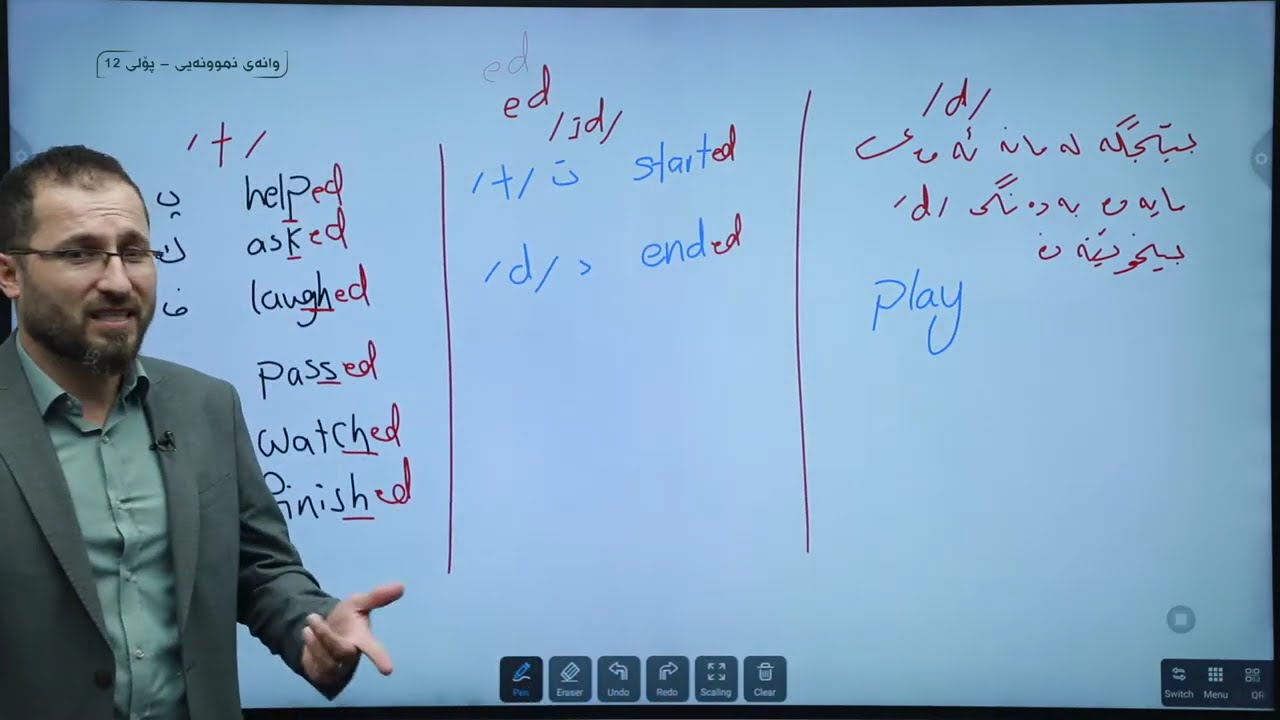 وانەی نموونەیی – پۆلی 12
ed
ed
/t/
پ helped
ك asked
ف laughed
passed
watched
finished
/ɪd/
/t/ ت started
/d/ د ended
/d/
بێتجگە لەمانە ئەوەی
مایەوە بەدەنگی /d/
بیخوێنەوە
play
Pen
Eraser
Undo
Redo
Scaling
Clear
Switch
Menu
QR